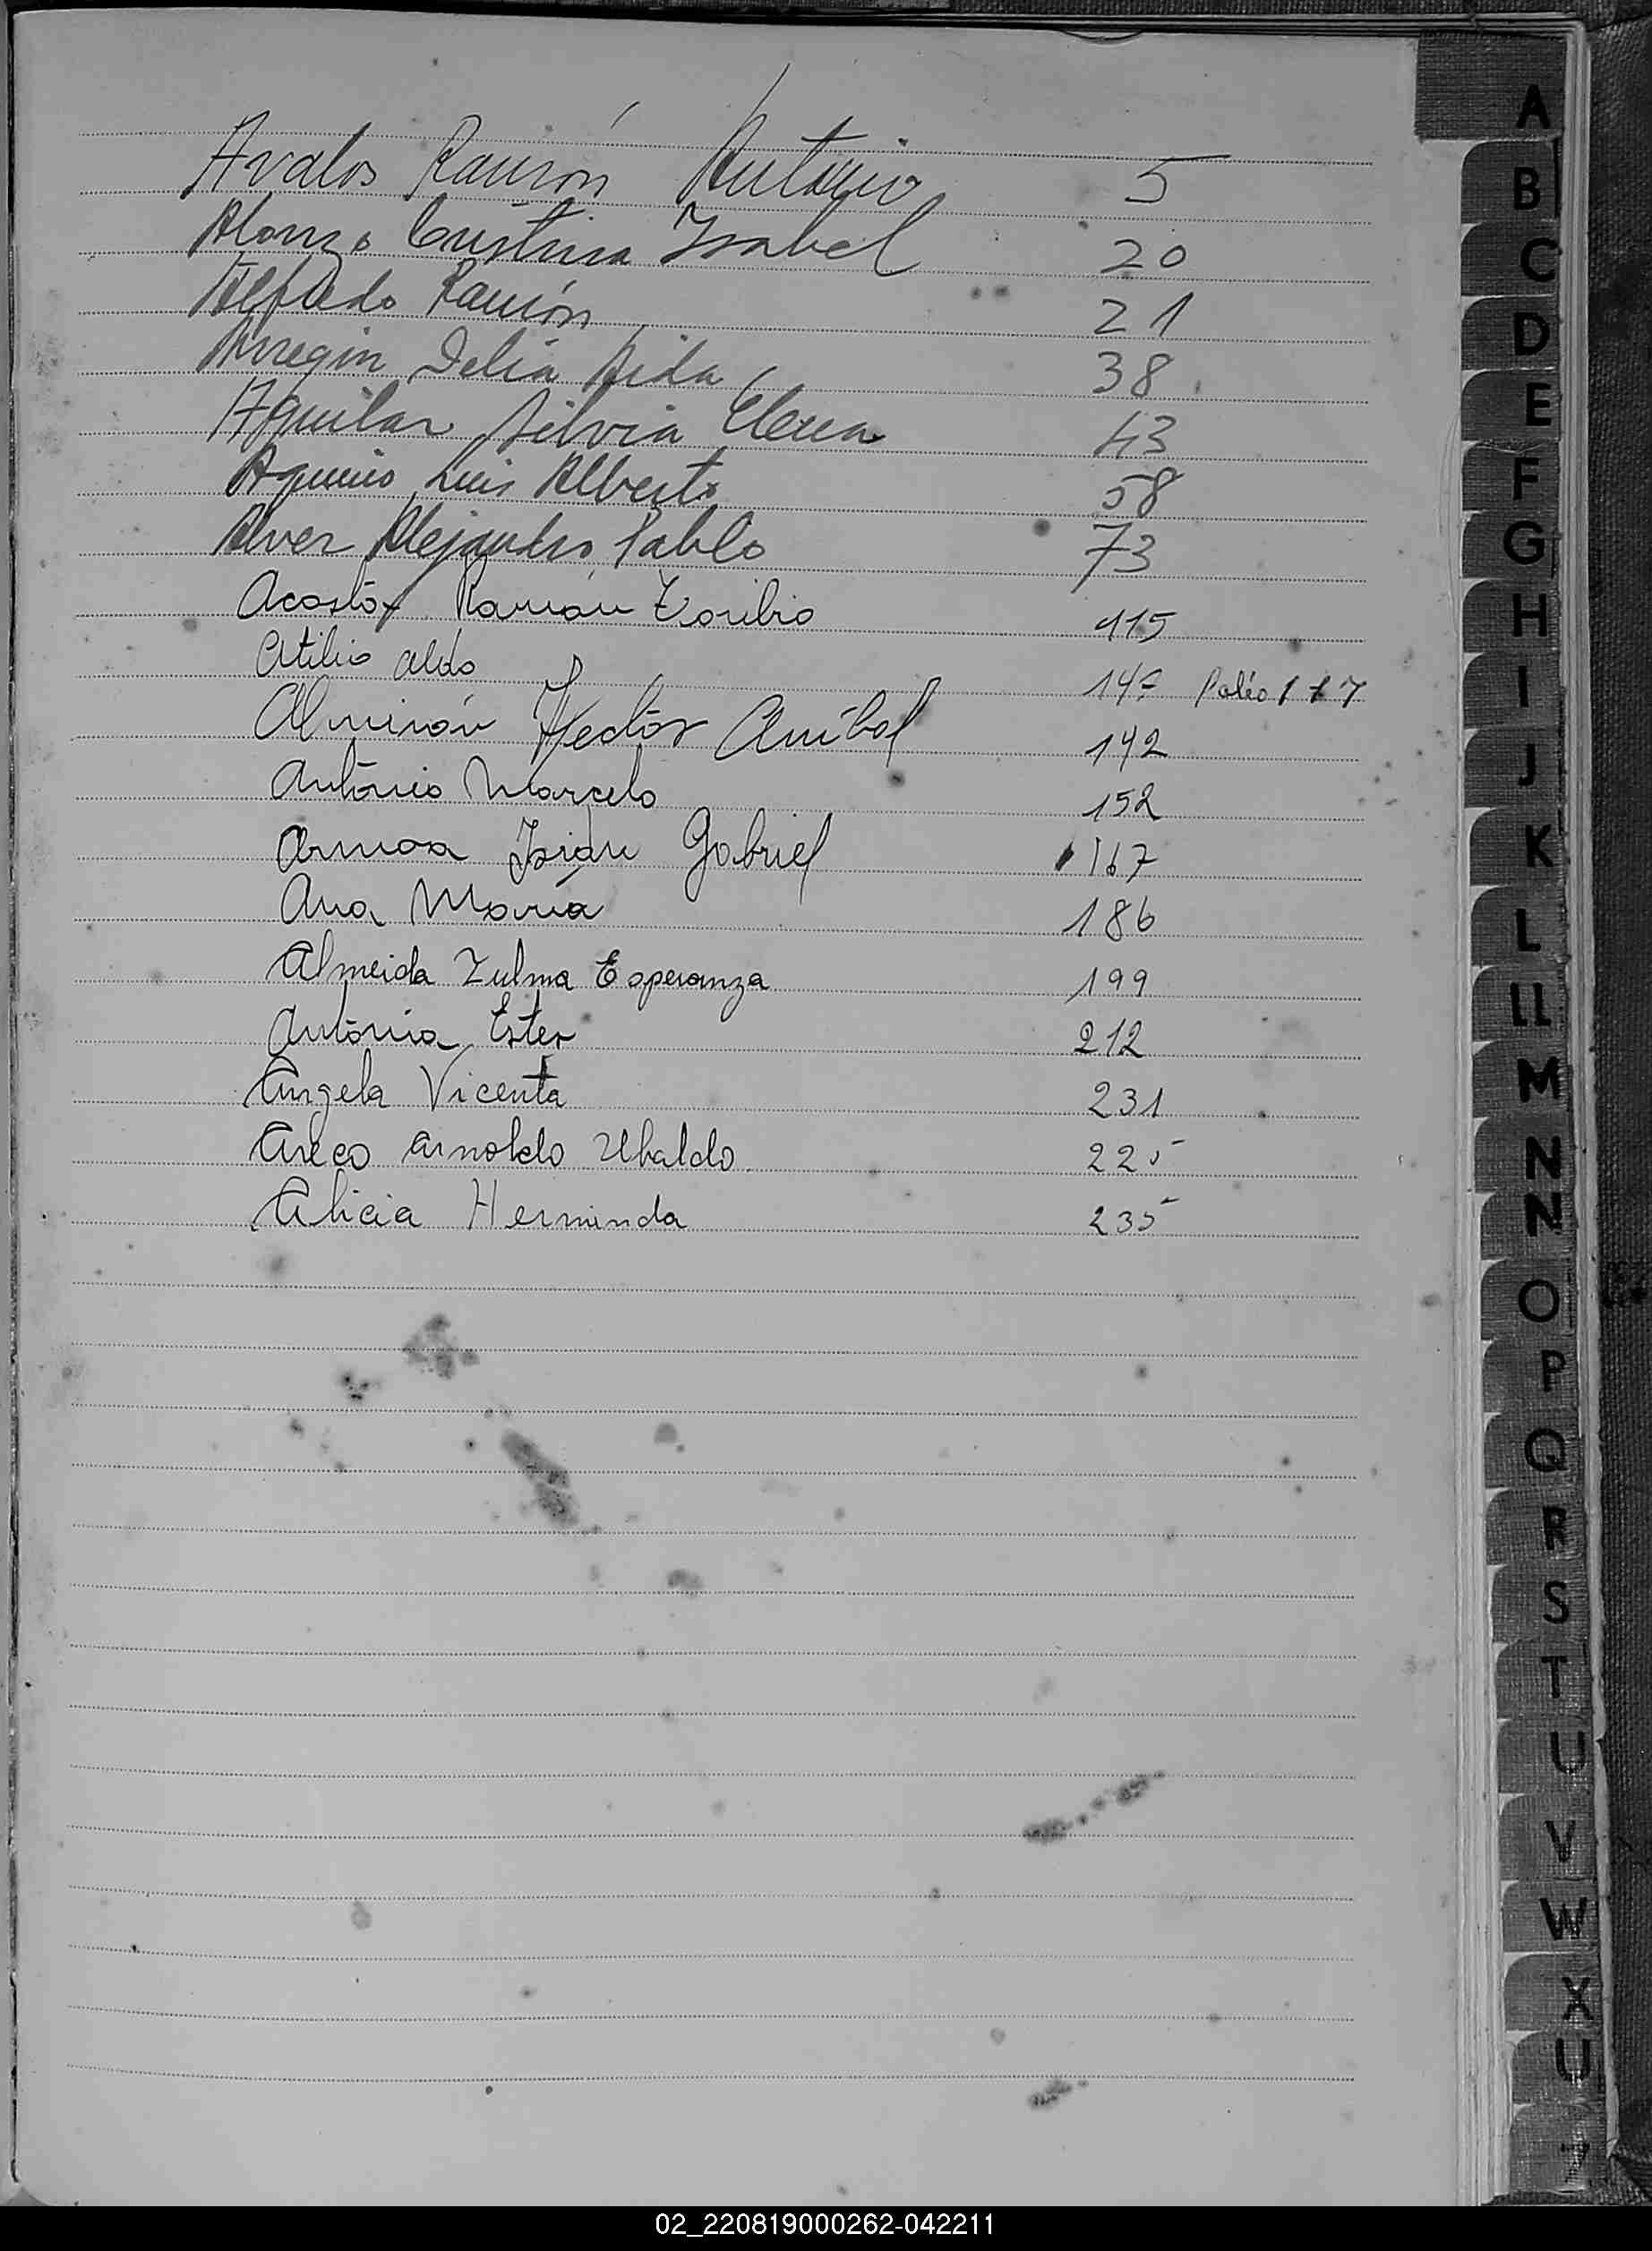 Avalos Ramón Antonio 5
Alonzo Cristina Isabel 20
Alfredo Ramón 21
Arregin Delia Aida 38
Aguilar Silvia Elena 43
Aquino Luis Alberto 58
Alvez Alejandro Pablo 73
Acosta Ramón Toribio 115
Atilio Aldo 147
Almirón Hector Anibal 142
Antonio Marcelo 152
Armoa Gabriel 167
Ana Maria 186
Almeida Zulma Esperanza 199
Antonia Ester 212
Angela Vicenta 231
Areco Arnoldo Ubaldo 225
Alicia Herminda 235
A
B
C
D
E
F
G
H
I
J
K
L
LL
M
N
Ñ
O
P
Q
R
S
T
U
V
W
X
Z
02_220819000262-042211